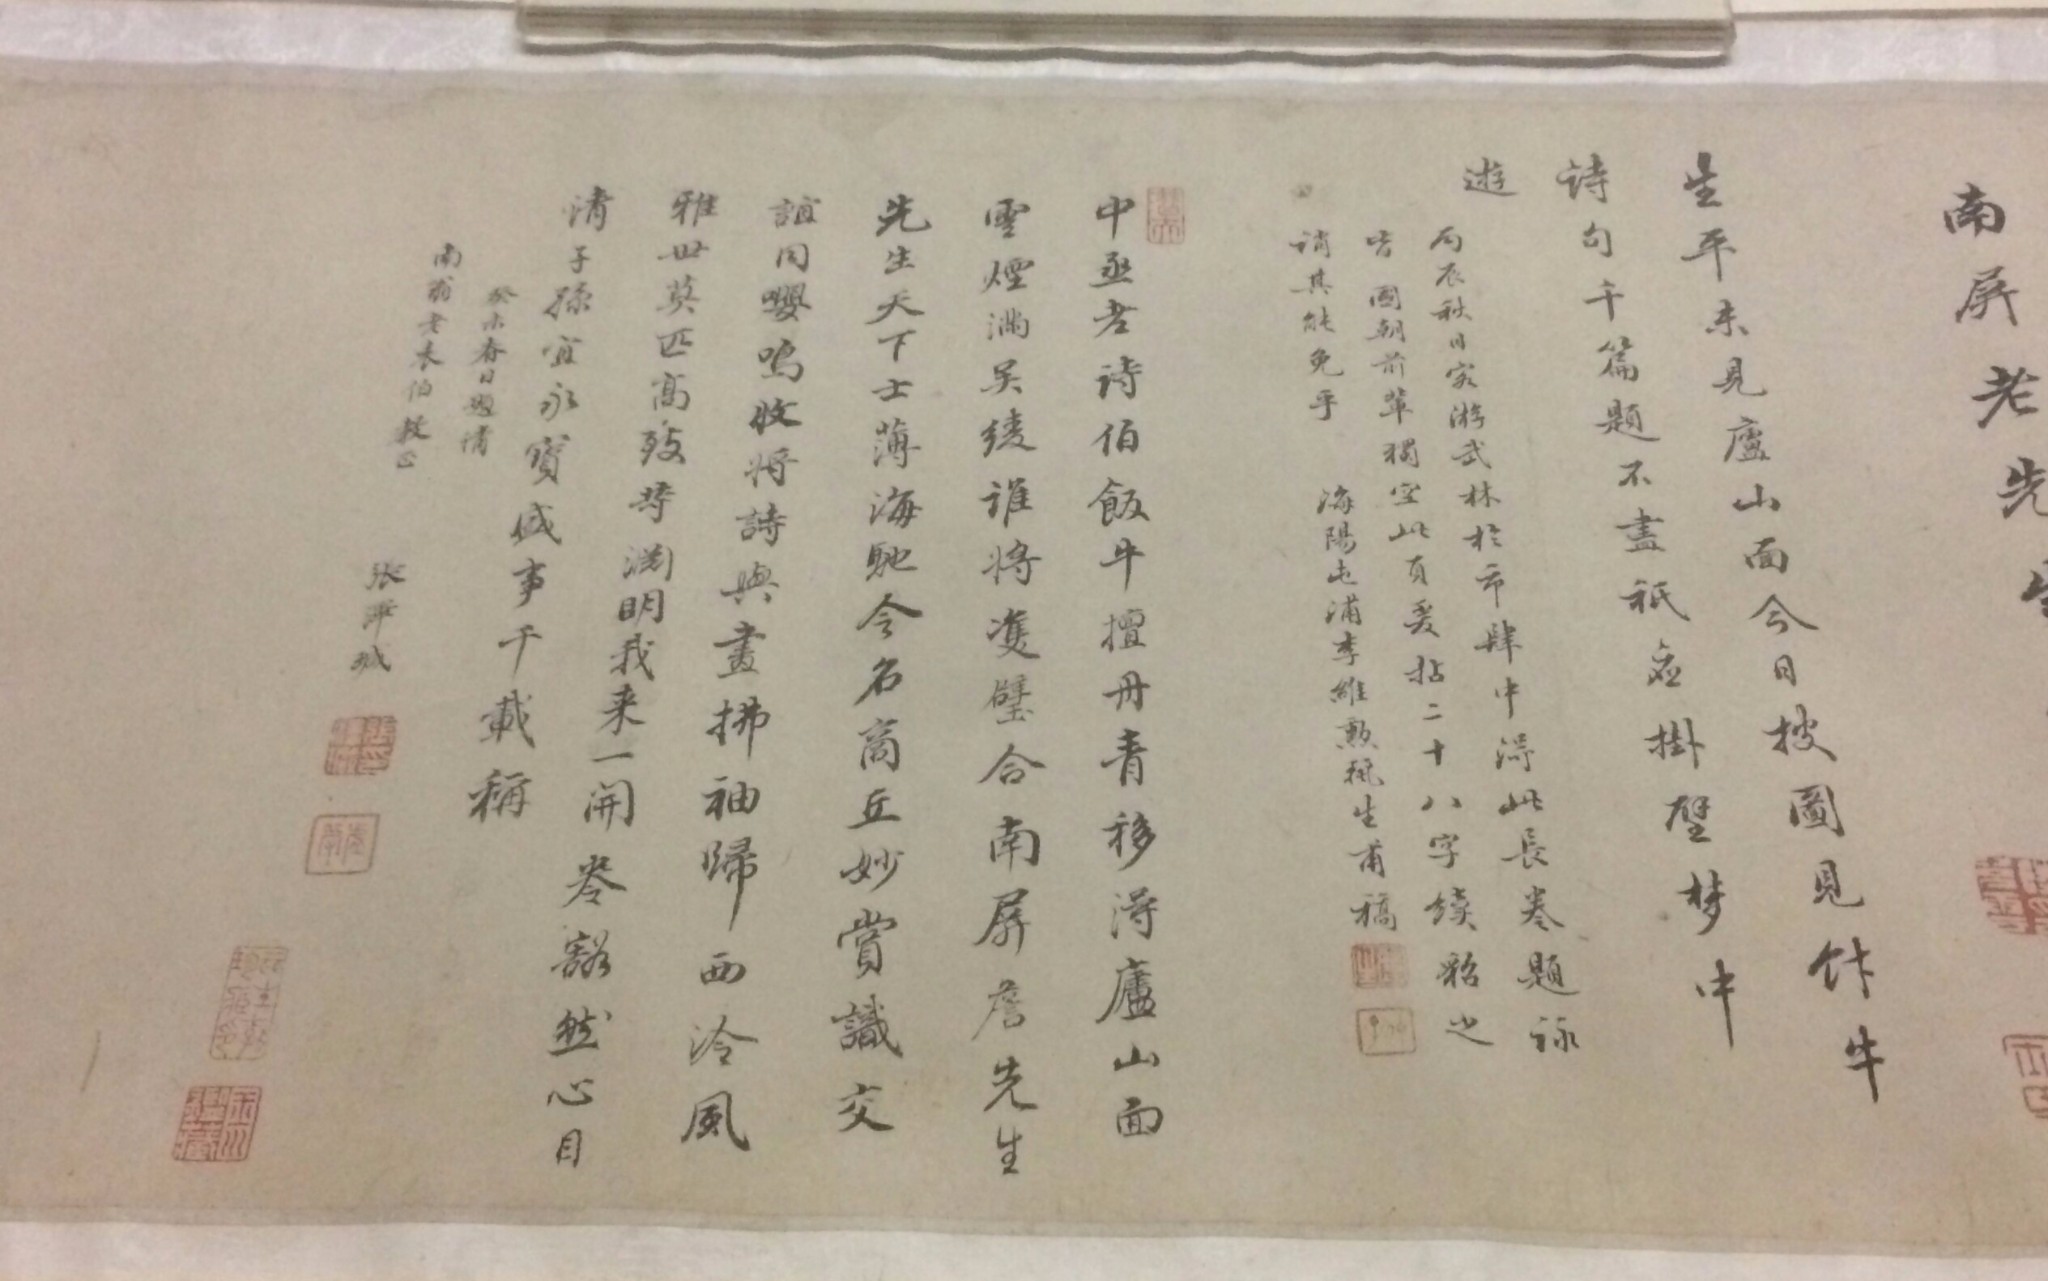 南屏老先
生平未見廬山面今日披圖見飰牛
詩句千篇題不盡祇應掛壁夢中
遊
丙辰秋日家游武林於市肆中得此長卷題詠
皆國朝前輩獨空此頁爰拈二十八字續貂之
誚其能免乎 海陽屯浦李維勲 生甫稿
中丞老詩伯飯牛擅丹青移得廬山面
雲煙滿吳綾誰將雙璧合南屏詹先生
先生天下士薄海馳令名商丘妙賞識交
誼同嚶鳴收將詩與畫拂袖歸西泠風
雅世莫匹高致等淵明我来一開卷豁然心目
清子孫宜永寶盛事千載稱
癸未春日題請
南翁老表伯教正
張 城